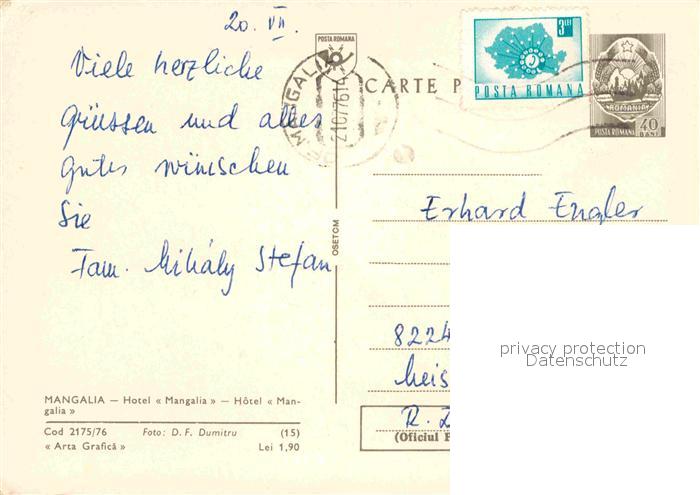 20. VII.
Viele herzliche
Grüssen und alles
gutes wünschen
Sie
Fam. Mihály Stefan
MANGALIA — Hotel « Mangalia » — Hôtel « Man-
galia »
Cod 2175/76 Foto: D. F. Dumitru (15)
« Arta Grafică » Lei 1,90
OSETCM
POSTA ROMANA
MANGALIA
21.07.76.14
CARTE P
3 LEI
POSTA ROMANA
ROMANIA
POSTA ROMANA 40
BANI
Erhard Engler
8224
Meis
R. D
(Oficiul P
privacy protection
Datenschutz